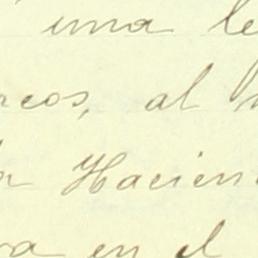 una le
reos, al
Hacien
en el